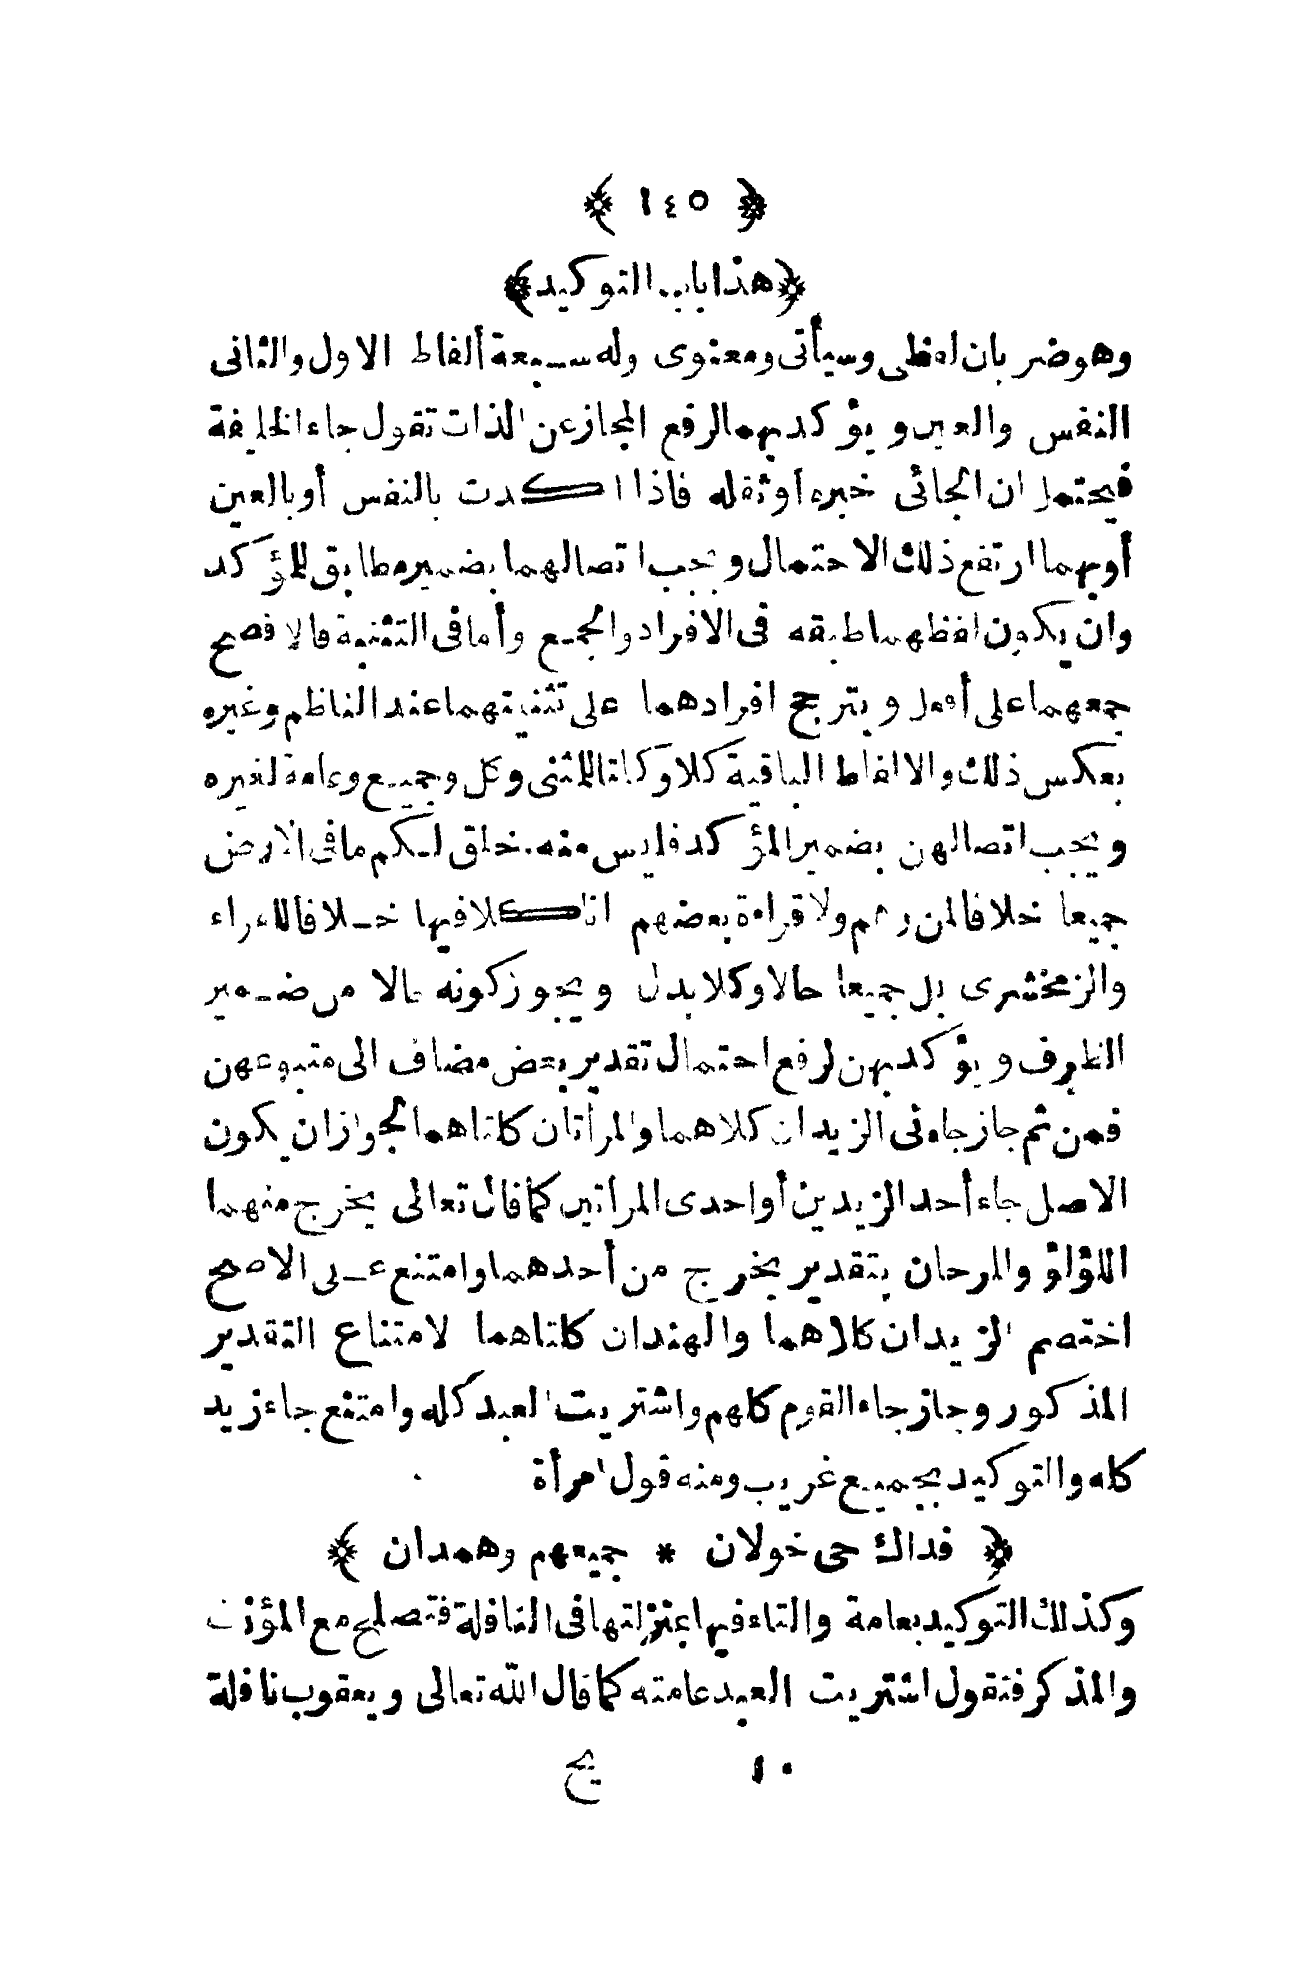 ﴿ ١٤٥ ﴾
﴿هذا باب التوكيد﴾
وهو ضربان لفظى وسيأتى ومعنوى وله سبعة ألفاظ الاول والثانى
النفس والعين ويؤكد بهما لرفع المجاز عن الذات تقول جاء الخليفة
فيحتمل ان الجائى خبره أو ثقله فاذا اكدت بالنفس أو بالعين
أو بهما ارتفع ذلك الاحتمال ويجب اتصالهما بضمير مطابق للمؤكد
وان يكون لفظهما طبقه فى الافراد والجمع وأما فى التثنية فالافصح
جمعهما على أفعل ويترجح افرادهما على تثنيتهما عند الناظم وغيره
بعكس ذلك والالفاظ الباقية كلا وكلتا للمثنى وكل وجميع وعامة لغيره
ويجب اتصالهن بضمير المؤكد فليس منه خلق لكم ما فى الارض
جميعا خلافا لمن وهم ولا قراءة بعضهم انا كلا فيها خلافا للفراء
والزمخشرى بل جميعا حالا وكلا بدل ويجوز كونه حالا من ضمير
الظرف ويؤكد بهن لرفع احتمال تقدير بعض مضاف الى متبوعهن
فمن ثم جاز جاءنى الزيدان كلاهما والمرأتان كلتاهما لجواز ان يكون
الاصل جاء أحد الزيدين أو احدى المرأتين كما قال تعالى يخرج منهما
اللؤلؤ والمرجان بتقدير يخرج من أحدهما وامتنع على الاصح
اختصم الزيدان كلاهما والهندان كلتاهما لامتناع التقدير
المذكور وجاز جاء القوم كلهم واشتريت العبد كله وامتنع جاء زيد
كله والتوكيد بجميع غريب ومنه قول امرأة
﴿ فداك حى خولان * جميعهم وهمدان ﴾
وكذلك التوكيد بعامة والتاء فيها بمنزلتها فى النافلة فتصلح مع المؤنث
والمذكر فتقول اشتريت العبد عامته كما قال الله تعالى ويعقوب نافلة
١٠ يح